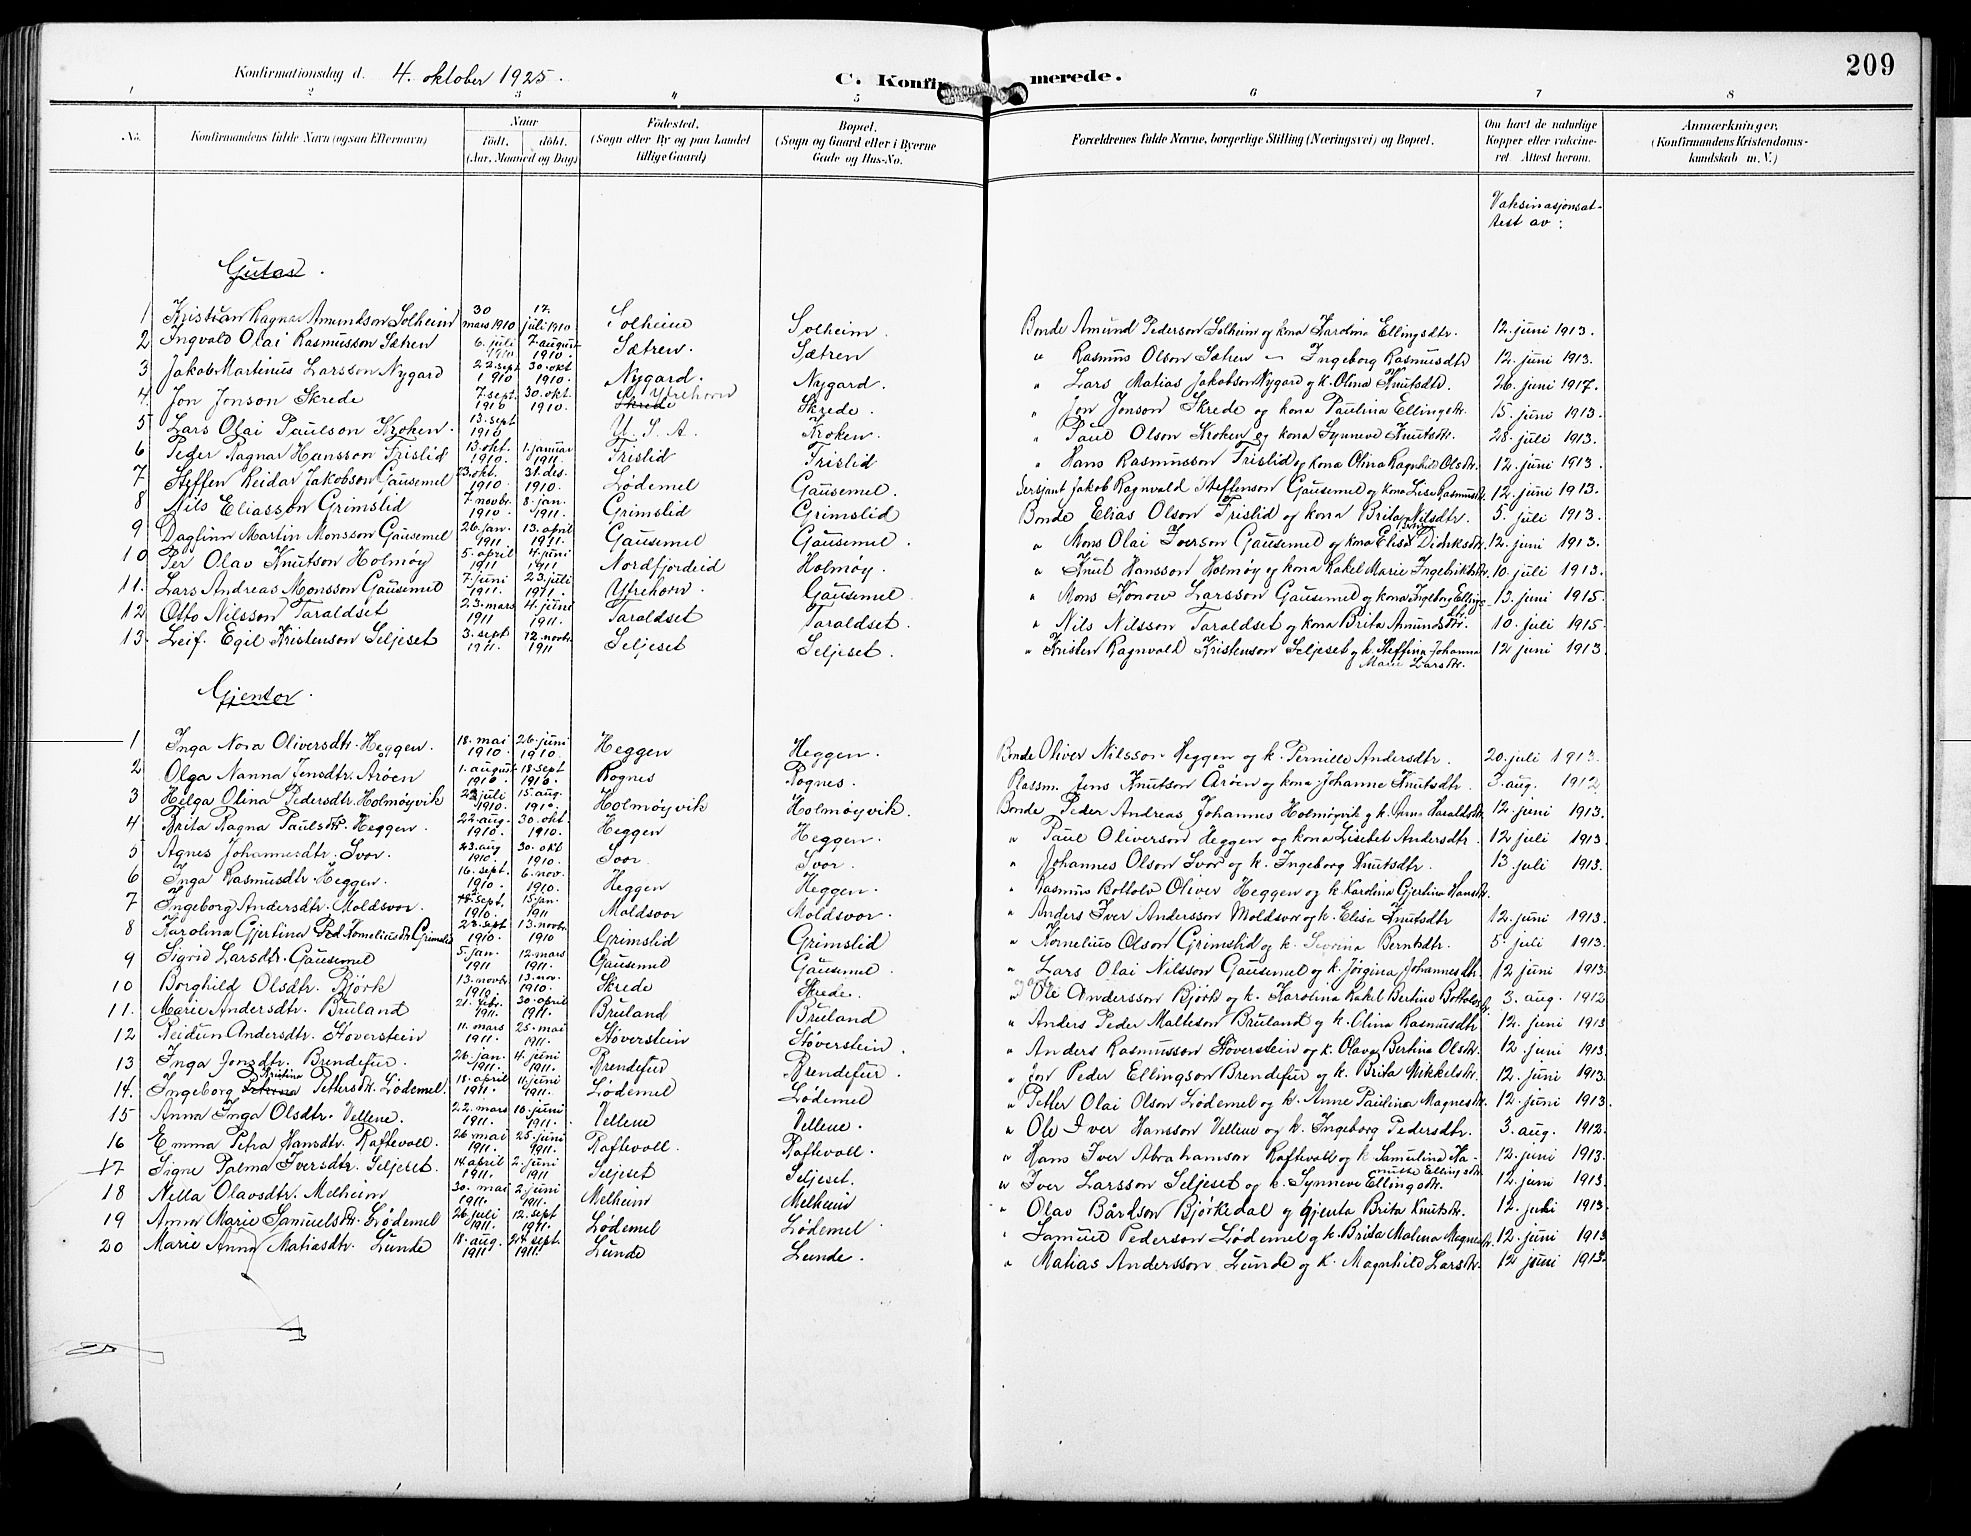 209
Konfirmationsdag d. 4. oktober 1925.
C. Konfirmerede.
1 2 3 4 5 6 7 8
No. Konfirmandens fulde Navn (ogsaa Efternavn) Naar Født, døbt. (Aar, Maaned og Dag) Fødested. (Sogn eller By og paa Landet tillige Gaard) Bopæl. (Sogn og Gaard eller i Byerne Gade og Hus-No. Forældrenes fulde Navne, borgerlige Stilling (Næringsvei) og Bopæl. Om havt de naturlige Kopper eller vakcineret. Attest herom. Anmærkninger. (Konfirmandens Kristendomskundskab m. V.)
Vaksinasjonsattest av:
Gutar.
1 Kristian Ragnar Amundson Solheim 30 mars 1910 17. juli 1910 Solheim Solheim. Bonde Amund Pederson Solheim og kona Karolina Ellingsdtr. 12. juni 1913.
2 Ingvald Olai Rasmusson Sætren 6. juli 1910 7. august 1910. Sætren. Sætren " Rasmus Olson Sætren – Ingeborg Rasmusdtr 12. juni 1913.
3 Jakob Martinus Larsson Nygard 22. sept 1910 30. okt 1910. Nygard. Nygard. " Lars Matias Jakobson Nygard og k. Olina Knutsdtr. 26. juni 1917.
4. Jon Jonson Skrede 7. sept. 1910 30. okt. 1910. Skrede Ytrehorn Skrede. " Jon Jonson Skrede og kona Paulina Ellingsdtr. 15. juni 1913.
5 Lars Olai Paulson Kroken. 13. sept 1910 U. S. A. Kroken. " Paul Olson Kroken og kona Synneve Knutsdtr. 28. juli 1913.
6 Peder Ragnar Hansson Frislid 13. okt. 1910 1. januar 1911. Frislid Frislid " Hans Rasmusson Frislid og kona Olina Ragnhild Olsdtr. 12. juni 1913.
7 Steffen Reidar Jakobson Gausemel 23. okt. 1910. 31. des. 1910. Lødemel Gausemel. Sersjant Jakob Ragnvald Steffenson Gausemel og kona Lise Rasmusdtr. 12. juni 1913.
8 Nils Eliasson Grimslid 7. novbr. 1910. 8. jan. 1911. Grimslid Grimslid Bonde Elias Olson Frislid og kona Brita Nilsdtr. 5. juli 1913.
9 Dagfinn Martin Monsson Gausemel 26. jan. 1911 13. april 1911. Gausemel Gausemel. " Mons Olai Iverson Gausemel og kona Elisa Didriksdtr. 12. juni 1913.
10 Per Olav Knutson Holmøy 5. april 1911 4. juni 1911 Nordfjordeid Holmøy. " Knut Hansson Holmøy og kona Rakel Marie Ingebriktsdtr. 10. juli 1913.
11. Lars Andreas Monsson Gausemel 7. juni 1911. 23. juli 1911. Ytrehorn. Gausemel. " Mons Konow Larsson Gausemel og kona Ingeborg Ellingsdtr. 13. juni 1915.
12 Otto Nilsson Taraldset 23. mars 1911 4. juni 1911. Taraldset Taraldset. " Nils Nilsson Taraldset og kona Brita Amundsdtr. 10. juli 1915.
13. Leif Egil Kristenson Seljeset 3. sept 1911. 12. novbr. 1911 Seljeset Seljeset. " Kristen Ragnvald Kristenson Seljeset og k. Steffina Johanna Marie Larsdtr. 12 juni 1913.
Gjentor.
1 Inga Nora Oliversdtr. Heggen. 18. mai 1910. 26. juni 1910 Heggen Heggen. Bonde Oliver Nilsson Heggen og k. Pernille Andersdtr. 20. juli 1913.
2 Olga Nanna Jensdtr. Årøen 1. august 1910. 18. sept 1910. Rognes Rognes. Plassm. Jens Knutson Årøen og kona Johanne Knutsdtr. 3. aug. 1912
3 Helga Olina Pedersdtr. Holmøyvik 22 juli 1910. 15. aug. 1910. Holmøyvik Holmøyvik. Bonde Peder Andreas Johannes Holmøyvik og k. Anna Haraldsdtr 12 juni 1913.
4 Brita Ragna Paulsdtr. Heggen. 22. aug. 1910. 30. okt. 1910. Heggen Heggen. " Paul Oliverson Heggen og kona Lisebet Andersdtr. 12 juli 1913.
5 Agnes Johannesdtr. Svor. 23. aug 1910. 30. okt 1910. Svor. Svor. " Johannes Olson Svor og k. Ingeborg Knutsdtr. 13. juli 1913.
6 Inga Rasmusdtr. Heggen. 16. sept. 1910 6. nov. 1910. Heggen Heggen. " Rasmus Bottolv Oliver Heggen og k. Karolina Gjertina Hansdtr.
7 Ingeborg Andersdtr. Moldsvor. sept. 1910. 15. jan. 1911 Moldsvor Moldsvor. " Anders Iver Andersson Moldsvor og k. Elisa Knutsdtr 12. juni 1913.
8 Karolina Gjertina Korneliusdtr. Grimslid 23. sept 1910. 13. novbr. 1910 Grimslid Grimslid " Kornelius Olson Grimslid og k. Severina Berntsdtr. 5. juli 1913.
9 Sigrid Larsdtr. Gausemel 5. jan. 1911 12. mars 1911. Gausemel Gausemel. " Lars Olai Nilsson Gausemel og k. Jørgina Johannesdtr. 12 juni 1913.
10 Borghild Olsdtr. Bjørk 13. novbr. 1910. 13. nov. 1910. Skrede Skrede. " Ole Andersson Bjørk og k. Karolina Rakel Bertine Bottolvsdtr. 3. aug. 1912
11. Marie Andersdtr. Bruland 21. febr. 1911. 30. april 1911. Bruland Bruland " Anders Peder Malteson Bruland og k. Olina Rasmusdtr 12. juni 1913
12 Reidun Andersdtr. Støverstein 11. mars 1911. 25. mai 1911. Støverstein Støverstein. " Anders Rasmusson Støverstein og k. Olava Bertina Olsdtr. 12. juni 1913.
13 Inga Jonsdtr. Brendefur. 26. jan. 1911. 4. juni 1911. Brendefur Brendefur. " Jon Peder Ellingson Brendefur og k. Brita Mikkelsdtr. 12. juni 1913.
14. Ingeborg Kristina Pettersdtr. Lødemel. 18. april 1911. 11. juni 1911. Lødemel Lødemel " Petter Olai Olson Lødemel og k. Anne Paulina Magnesdtr. 12. juni 1913.
15 Anna Inga Olsdtr. Vellene. 22. mars 1911. 10. juni 1911. Vellene Vellene. " Ole Iver Hansson Vellene og k. Ingeborg Pedersdtr. 3. aug. 1912.
16 Emma Petra Hansdtr. Raftevoll. 26 mai 1911. 25. juni 1911. Raftevoll Raftevoll. " Hans Iver Abrahamson Raftevoll og k. Samulina Ellingsdtr. 12. juni 1913.
17 Signe Palma Iversdtr. Seljeset. 14. april 1911. 2. juni 1911 Seljeset Seljeset. " Iver Larsson Seljeset og k. Synneve Ellingsdtr. 12. juni 1913.
18 Nella Olavsdtr. Melheim 30. mai 1911. 2. juni 1911. Melheim Melheim " Olav Bårdson Bjørkedal og gjenta Brita Knutsdtr. 12. juli 1913.
19 Anna Marie Samuelsdtr. Lødemel 26. juli 1911. 12. sept 1911. Lødemel Lødemel " Samuel Pederson Lødemel og k. Brita Malena Magnesdtr. 12. juni 1913
20 Marie Anna Matiasdtr. Lunde 18. aug. 1911 24. sept. 1911. Lunde Lunde. " Matias Andersson Lunde og k. Magnhild Larsdtr. 12 juni 1913.